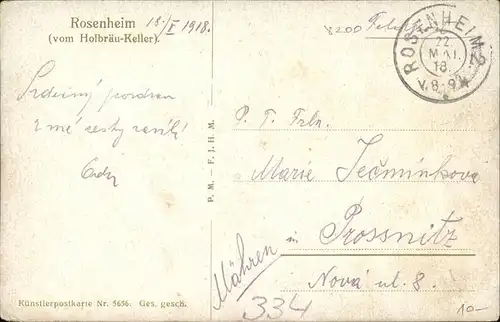 Rosenheim
(vom Hofbräu-Keller).
18./I 1918.
Srdečný pozdrav
z mé cesty
P. M. - F. J. H. M.
Künstlerpostkarte Nr. 5656. Ges. gesch.
ROSENHEIM 2
22
MAI.
18.
V. 8-9
P. T. Frln.
Marie Ječmínkova
in
Prossnitz
Nová ul. 8.
Mähren
334
10-